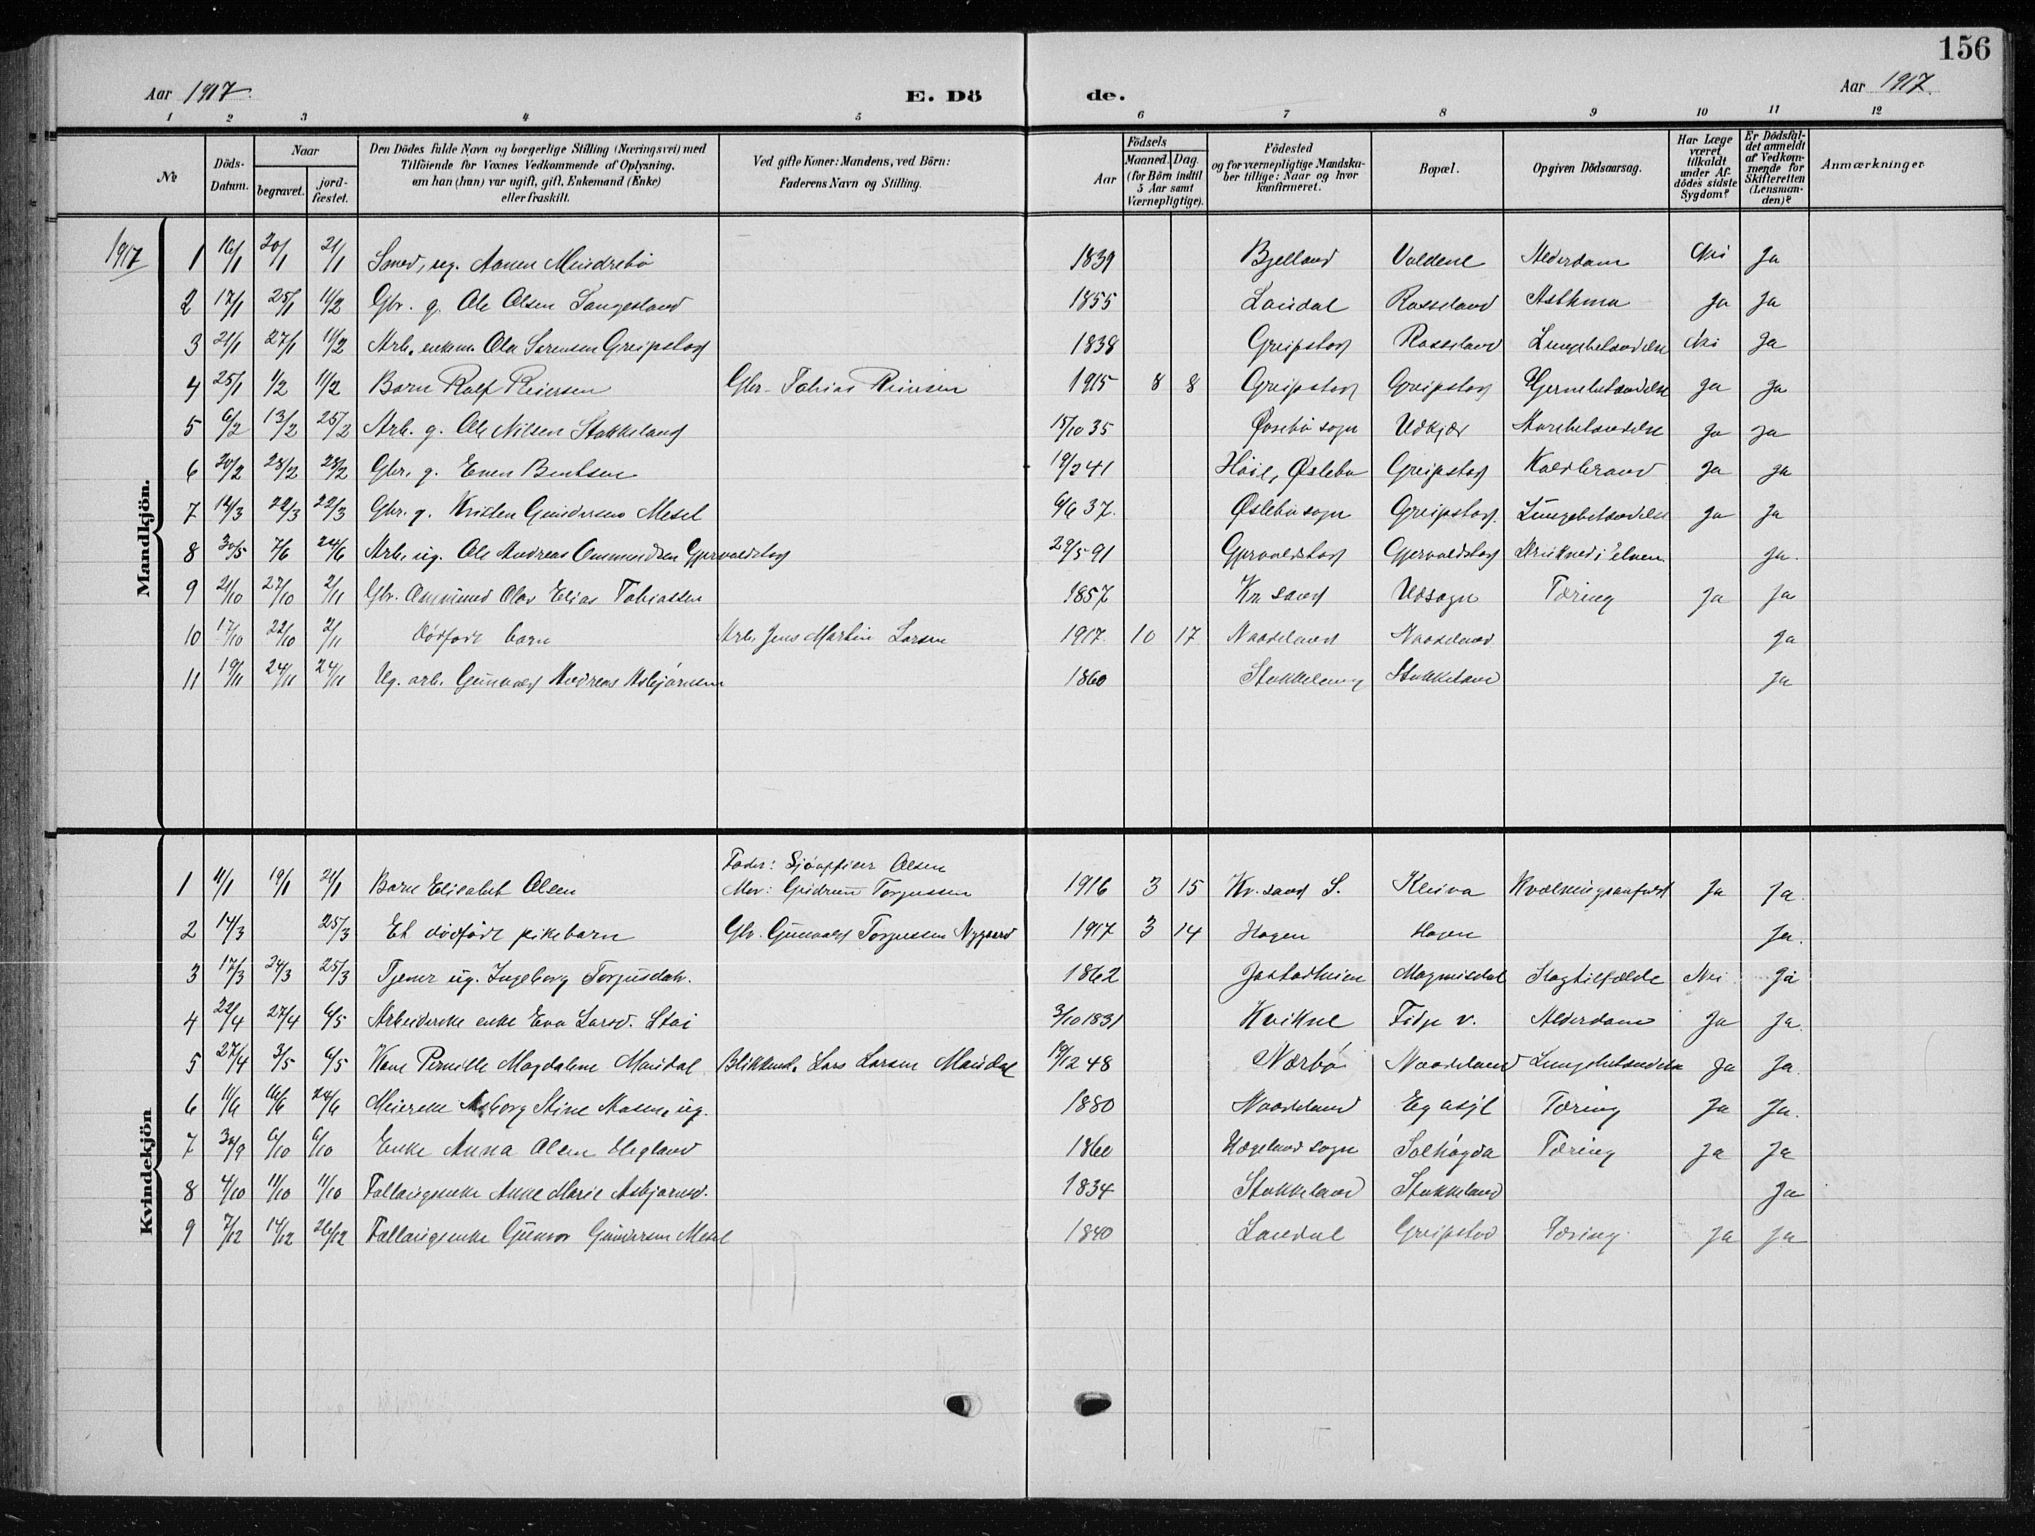 156
Aar 1917. E. Dö de. Aar 1917.
1 2 3 4 5 6 7 8 9 10 11 12
№
Döds-Datum.
Naar
begravet.
jord-fæstet.
Den Dödes fulde Navn og borgerlige Stilling (Næringsvei) med
Tilföiende for Voxnes Vedkommende af Oplysning,
om han (hun) var ugift, gift, Enkemand (Enke)
eller fraskilt.
Ved gifte Koner: Mandens, ved Börn:
Faderens Navn og Stilling.
Födsels
Aar
Maaned. Dag.
(for Börn indtil
5 Aar samt
Værnepligtige).
Födested
og for værnepligtige Mandska-
ber tillige: Naar og hvor
konfirmeret.
Bopæl.
Opgiven Dödsaarsag.
Har Læge
været
tilkaldt
under Af-
dödes sidste
Sygdom?
Er Dödsfal-
det anmeldt
af Vedkom-
mende for
Skifteretten
(Lensman-
den)?
Anmærkninger.
Mandkjön.
1917 1 16/1 20/1 21/1 Smed, ug. Aanen Mindrebö 1839 Bjelland Valdene Alderdom Nei Ja
2 17/1 25/1 11/2 Gbr. g. Ole Olsen Langesland 1855 Laudal Rosseland Asthma Ja Ja
3 21/1 27/1 11/2 Arb. enkem. Ole Sørensen Greipstad 1838 Greipstad Rosseland Lungebetændelse Nei Ja
4 25/1 1/2 11/2 Barn Rolf Reiersen Gbr. Tobias Reiersen 1915 8 8 Greipstad Greipstad Hjernebetændelse Ja Ja
5 6/2 13/2 25/2 Arb. g. Ole Nilsen Stokkeland 15/10 35 Øvrebö sogn Udkjær Marvbetændelse Ja Ja
6 20/2 28/2 28/2 Gbr. g. Even Bentsen 19/2 41 Höie, Øslebø Greipstad Koldbrand Ja Ja
7 14/3 22/3 22/3 Gbr. g. Kristen Gundersen Mesel 6/6 37. Øslebø sogn Greipstad. Lungebetændelse Ja Ja
8 30/5 7/6 24/6 Arb. ug. Ole Andreas Ommundsen Gjervoldstad 29/5 91 Gjervoldstad Gjervoldstad Drukned i Elven Ja.
9 21/10 27/10 2/11 Gbr. Ommund Olav Elias Tobiassen 1857 Kr.sand Udsogn Tæring Ja Ja
10 17/10 22/10 2/11 Dödfödt barn Arb. Jens Martin Larsen 1917 10 17 Naadeland Naadeland Ja
11 19/11 24/11 24/11 Ug. arb. Gunvald Andreas Asbjørnsen 1860 Stokkeland Stokkeland Ja
Kvindekjön
Fader: Sjöoffiser Olsen
1 11/1 19/1 21/1 Barn Elisabet Olsen Mor: Gudrun Torjussen 1916 3 15 Kr.sand S. Kleiva Kvælningsanfald Ja Ja.
2 14/3 25/3 Et dödfödt pikebarn Gbr. Gunvald Torjussen Nygaard 1917 3 14 Hagen Hagen Ja.
3 17/3 24/3 25/3 Tjener ug. Ingeborg Torjusdatr. 1862 Magnusdal Slagtilfælde Nei Ja
4 22/4 27/4 6/5 Arbeiderske enke Eva Larsd. Stai 3/10 1831 Kvikne Fidje v. Alderdom Ja Ja.
5 27/4 3/5 6/5 Kone Pernille Magdalene Mandal Blikkensl. Lars Larsen Mandal 19/12 48 Nærbø Naadeland Lungebetændelse Ja Ja.
6 11/6 16/6 24/6 Meierske Asborg Stine Aasen, ug. 1880 Naadeland Eg asyl Tæring Ja Ja.
7 30/9 6/10 6/10 Enke Anna Olsen Hegland 1860 Hægeland sogn Solhøgda Tæring Ja Ja
8 4/10 11/10 11/10 Fattigenke Anne Marie Asbjørnsd. 1834 Stokkeland Stokkeland Ja
9 7/12 14/12 26/12 Fattigenke Gunvor Gundersen Mesel 1840 Laudal Greipstad Tæring Ja Ja